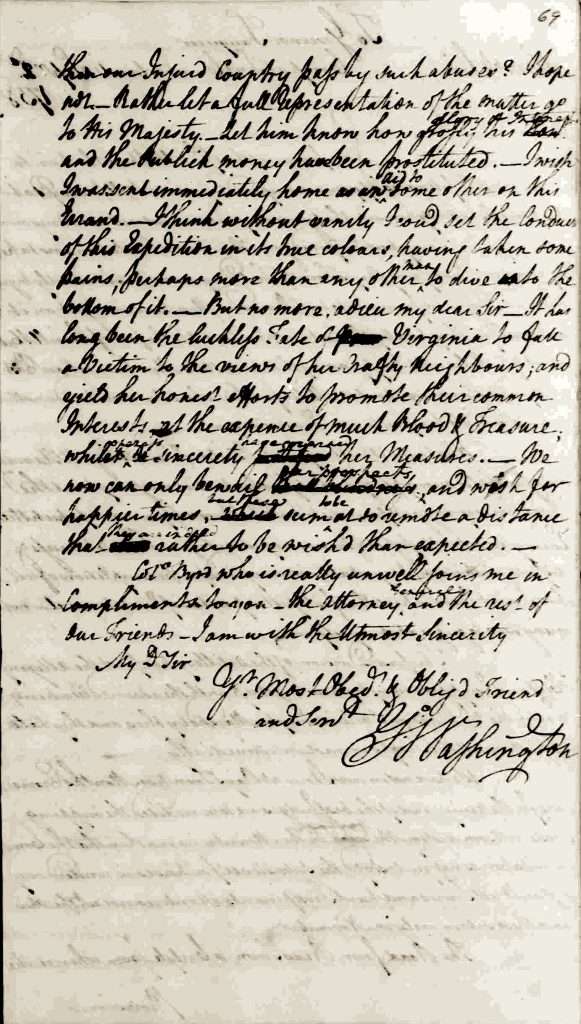 69
then our Injurd Country pass by such abuses? I hope
not. – Rather let a full Representation of the matter go
glory & Interest
to His Majesty. – Let him know how grosly his
and the Publick money have been prostituted. – I wish
aid to
I was sent immediately home as an some other on this
Errand. – I think without vanity I coud set the Conduct
of this Expedition in its true colours, having taken some
man
pains, perhaps more than any other to dive into the
bottom of it. – But no more, adieu my dear Sir – It has
long been the luckless Fate of Virginia to fall
a Victim to the views of her Crafty Neighbours; and
yield her honest efforts to promote their common
Interests at the expence of much Blood & Treasure;
whilst sincerety her Measures. – We
our prospects
now can only bewail and wish for
to be
happier times, seem at so remote a distance
that rather to be wish'd than expected. –
Colo. Byrd who is really unwell joins me in
Compliments to you – the Attorney, and the rest of
our Friends – I am with the Utmost Sincerity
My Dr Sir
Yr Most Obedt. & Obligd Friend
and Servt
Go Washington